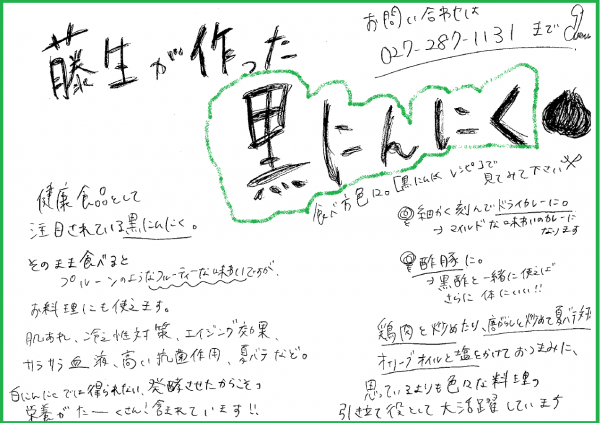 お問い合わせは
027-287-1131 まで
藤生が作った
黒にんにく
食べ方色々。[黒にんにく レシピ]で
見てみて下さい
健康食品として
注目されている黒にんにく。
そのまま食べると
プルーンのようなフルーティーな味わいですが、
お料理にも使えます。
肌あれ、冷え性対策、エイジング効果、
サラサラ血液、高い抗菌作用、夏バテなど。
白にんにくでは得られない、発酵させたからこそ
栄養がたーくさん!含まれています!!
◎細かく刻んでドライカレーに。
→マイルドな味わいのカレーに
なります
◎酢豚に。
→黒酢と一緒に使えば
さらに体にいい!!
鶏肉と炒めたり、唐がらしと炒めて夏バテ
オリーブオイルと塩をかけておつまみに、
思っているよりも色々な料理の
引き立て役として大活躍しています